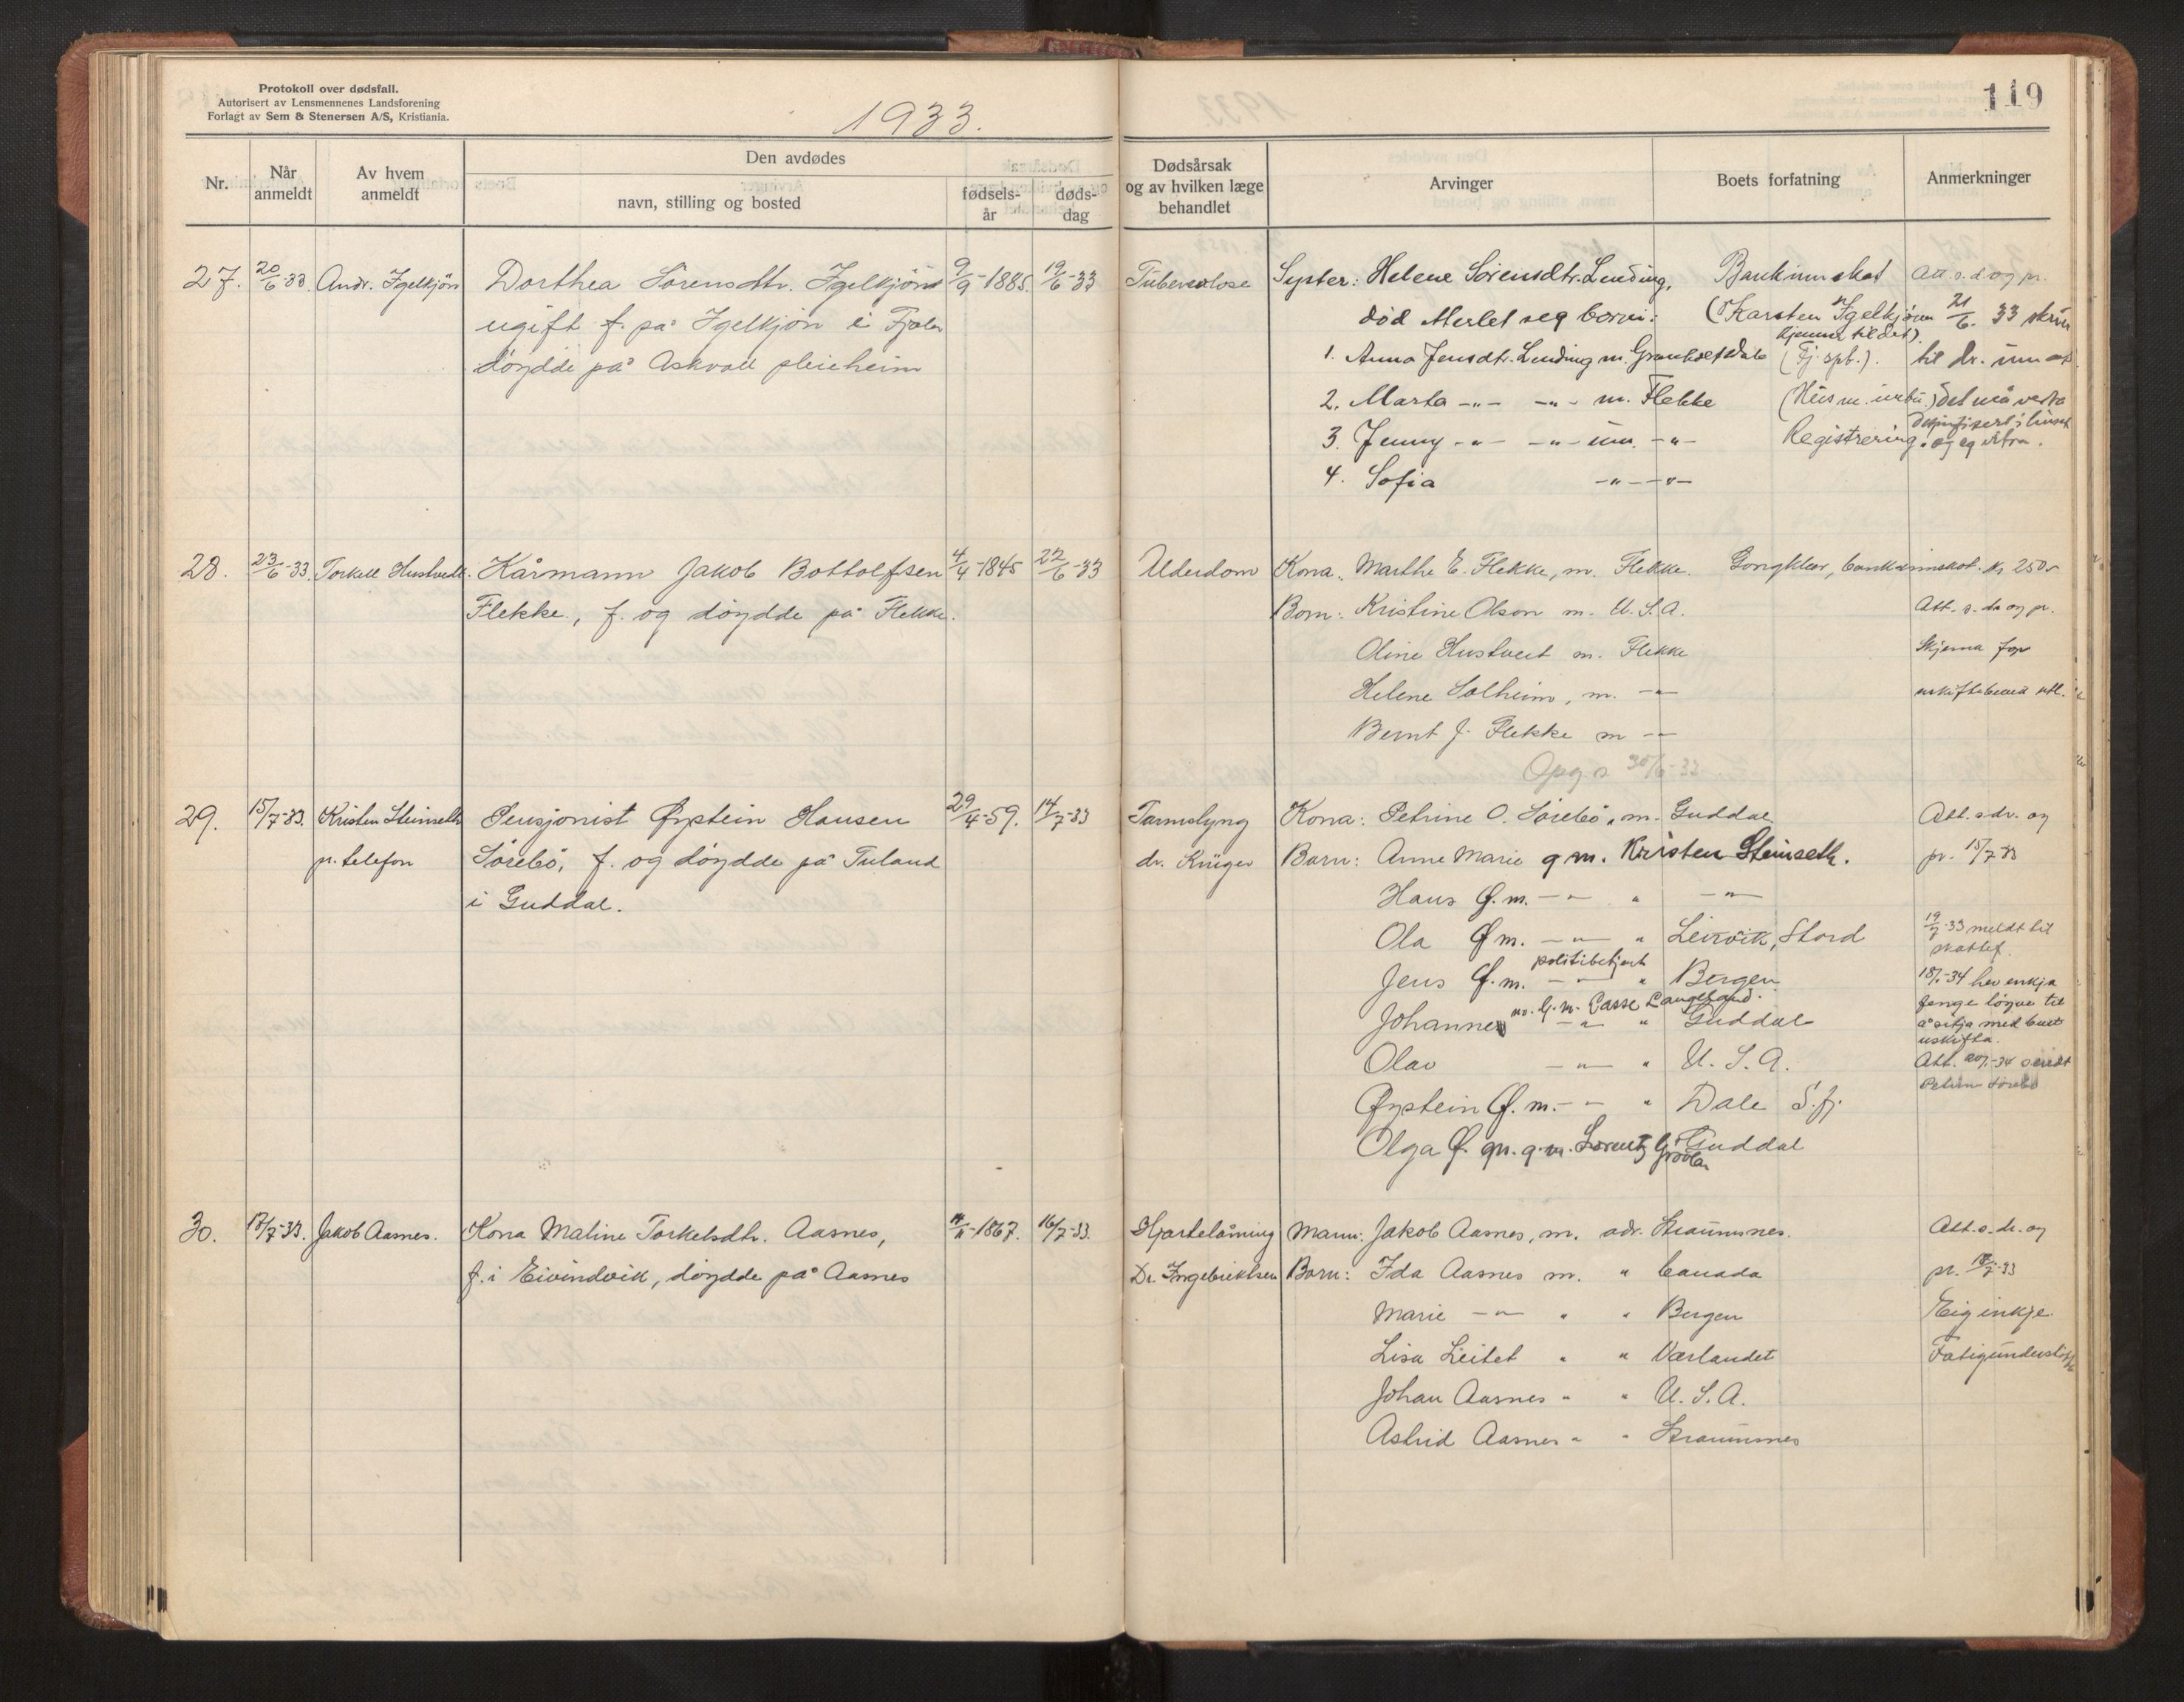 Protokoll over dødsfall.
Autorisert av Lensmennenes Landsforening
Forlagt av Sem & Stenersen A/S, Kristiania.
1933.
119
Nr.
Når anmeldt
Av hvem anmeldt
Den avdødes
navn, stilling og bosted
fødselsår
dødsdag
Dødsårsak og av hvilken læge behandlet
Arvinger
Boets forfatning
Anmerkninger
27. 20/6-33. Andr. Igelkjøn Dorthea Sørensdtr. Igelkjøn 9/9-1885. 19/6-33 Tuberculose Syster: Helene Sørensdtr. Lending, Bankinnskot Att. s. dr og pr.
ugift f. på Igelkjøn i Fjaler død Merlet seg born: (Karsten Igelkjøn 21/6. 33 skriv
kjenner til det).
døydde på Askvoll pleieheim 1. Anna Jensdtr. Lending m. Dale (Fj. spb.). til dr. um at
2. Marta -"- -"- m. Flekke det må verta
3. Jenny -"- -"- um. -"- Registrering. desinfisert i huset
4. Sofia -"- -"-
28. 23/6-33. Torkell Hustvedt. Kårmann Jakob Bottolfsen 4/4-1845 22/6-33 Alderdom Kona: Marthe E. Flekke, m. Flekke. Gongklær, bankinnskot. kr 250
Flekke, f. og døydde på Flekke. Born: Kristine Olson m. U.S.A. Att. s. dr og pr.
Oline Hustveit m. Flekke Skjema for
Helene Solheim, m. -"- uskiftebevil. utl.
Bernt J. Flekke m -"-
Opg. s 30/6-33
29. 15/7-33. Kristen Steinseth Pensjonist Øystein Hansen 29/4-59. 14/7-33 Tarmslyng Kona: Petrine O. Sørebø, m. Guddal Att. s dr. og
pr. telefon Sørebø, f. og døydde på Tuland dr. Krüger Born: Anne Marie g m. Kristen Steinseth. pr. 15/7 33
i Guddal. Hans Ø. m. -"- " -"-
Ola Ø m. -"- " Leirvik, Stord 19/7-33 meldt til skattef.
politibetjent
Jens Ø. m. -"- " Bergen 18/1-34 hev enkja
g. m. Lasse Langeland.
Johanne -"- " Guddal fenge løyve til
å sitja med buet
uskifta.
Olav -"- " U.S.A. Att. 20/1-34 sendt
Petrine Sørebø
Øystein Ø. m. -"- " Dale S.fj.
Olga Ø. gm. g. m. Lorentz Grøvlen Guddal
30. 18/7-33. Jakob Aasnes. Kona Maline Torkelsdtr. Aasnes, -1867. 16/7-33. Hjartelåming Mann: Jakob Aasnes, m. adr. Straumsnes. Att. s. dr. og
f. i Eivindvik, døydde på Aasnes Dr. Ingebriktsen Born: Ida Aasnes m. " Canada pr. 18/7-33
Marie -"- " " Bergen Eig inkje.
Lisa Leitet " " Værlandet Fatigunderstøtte
Johan Aasnes " " U.S.A.
Astrid Aasnes " " Straumsnes